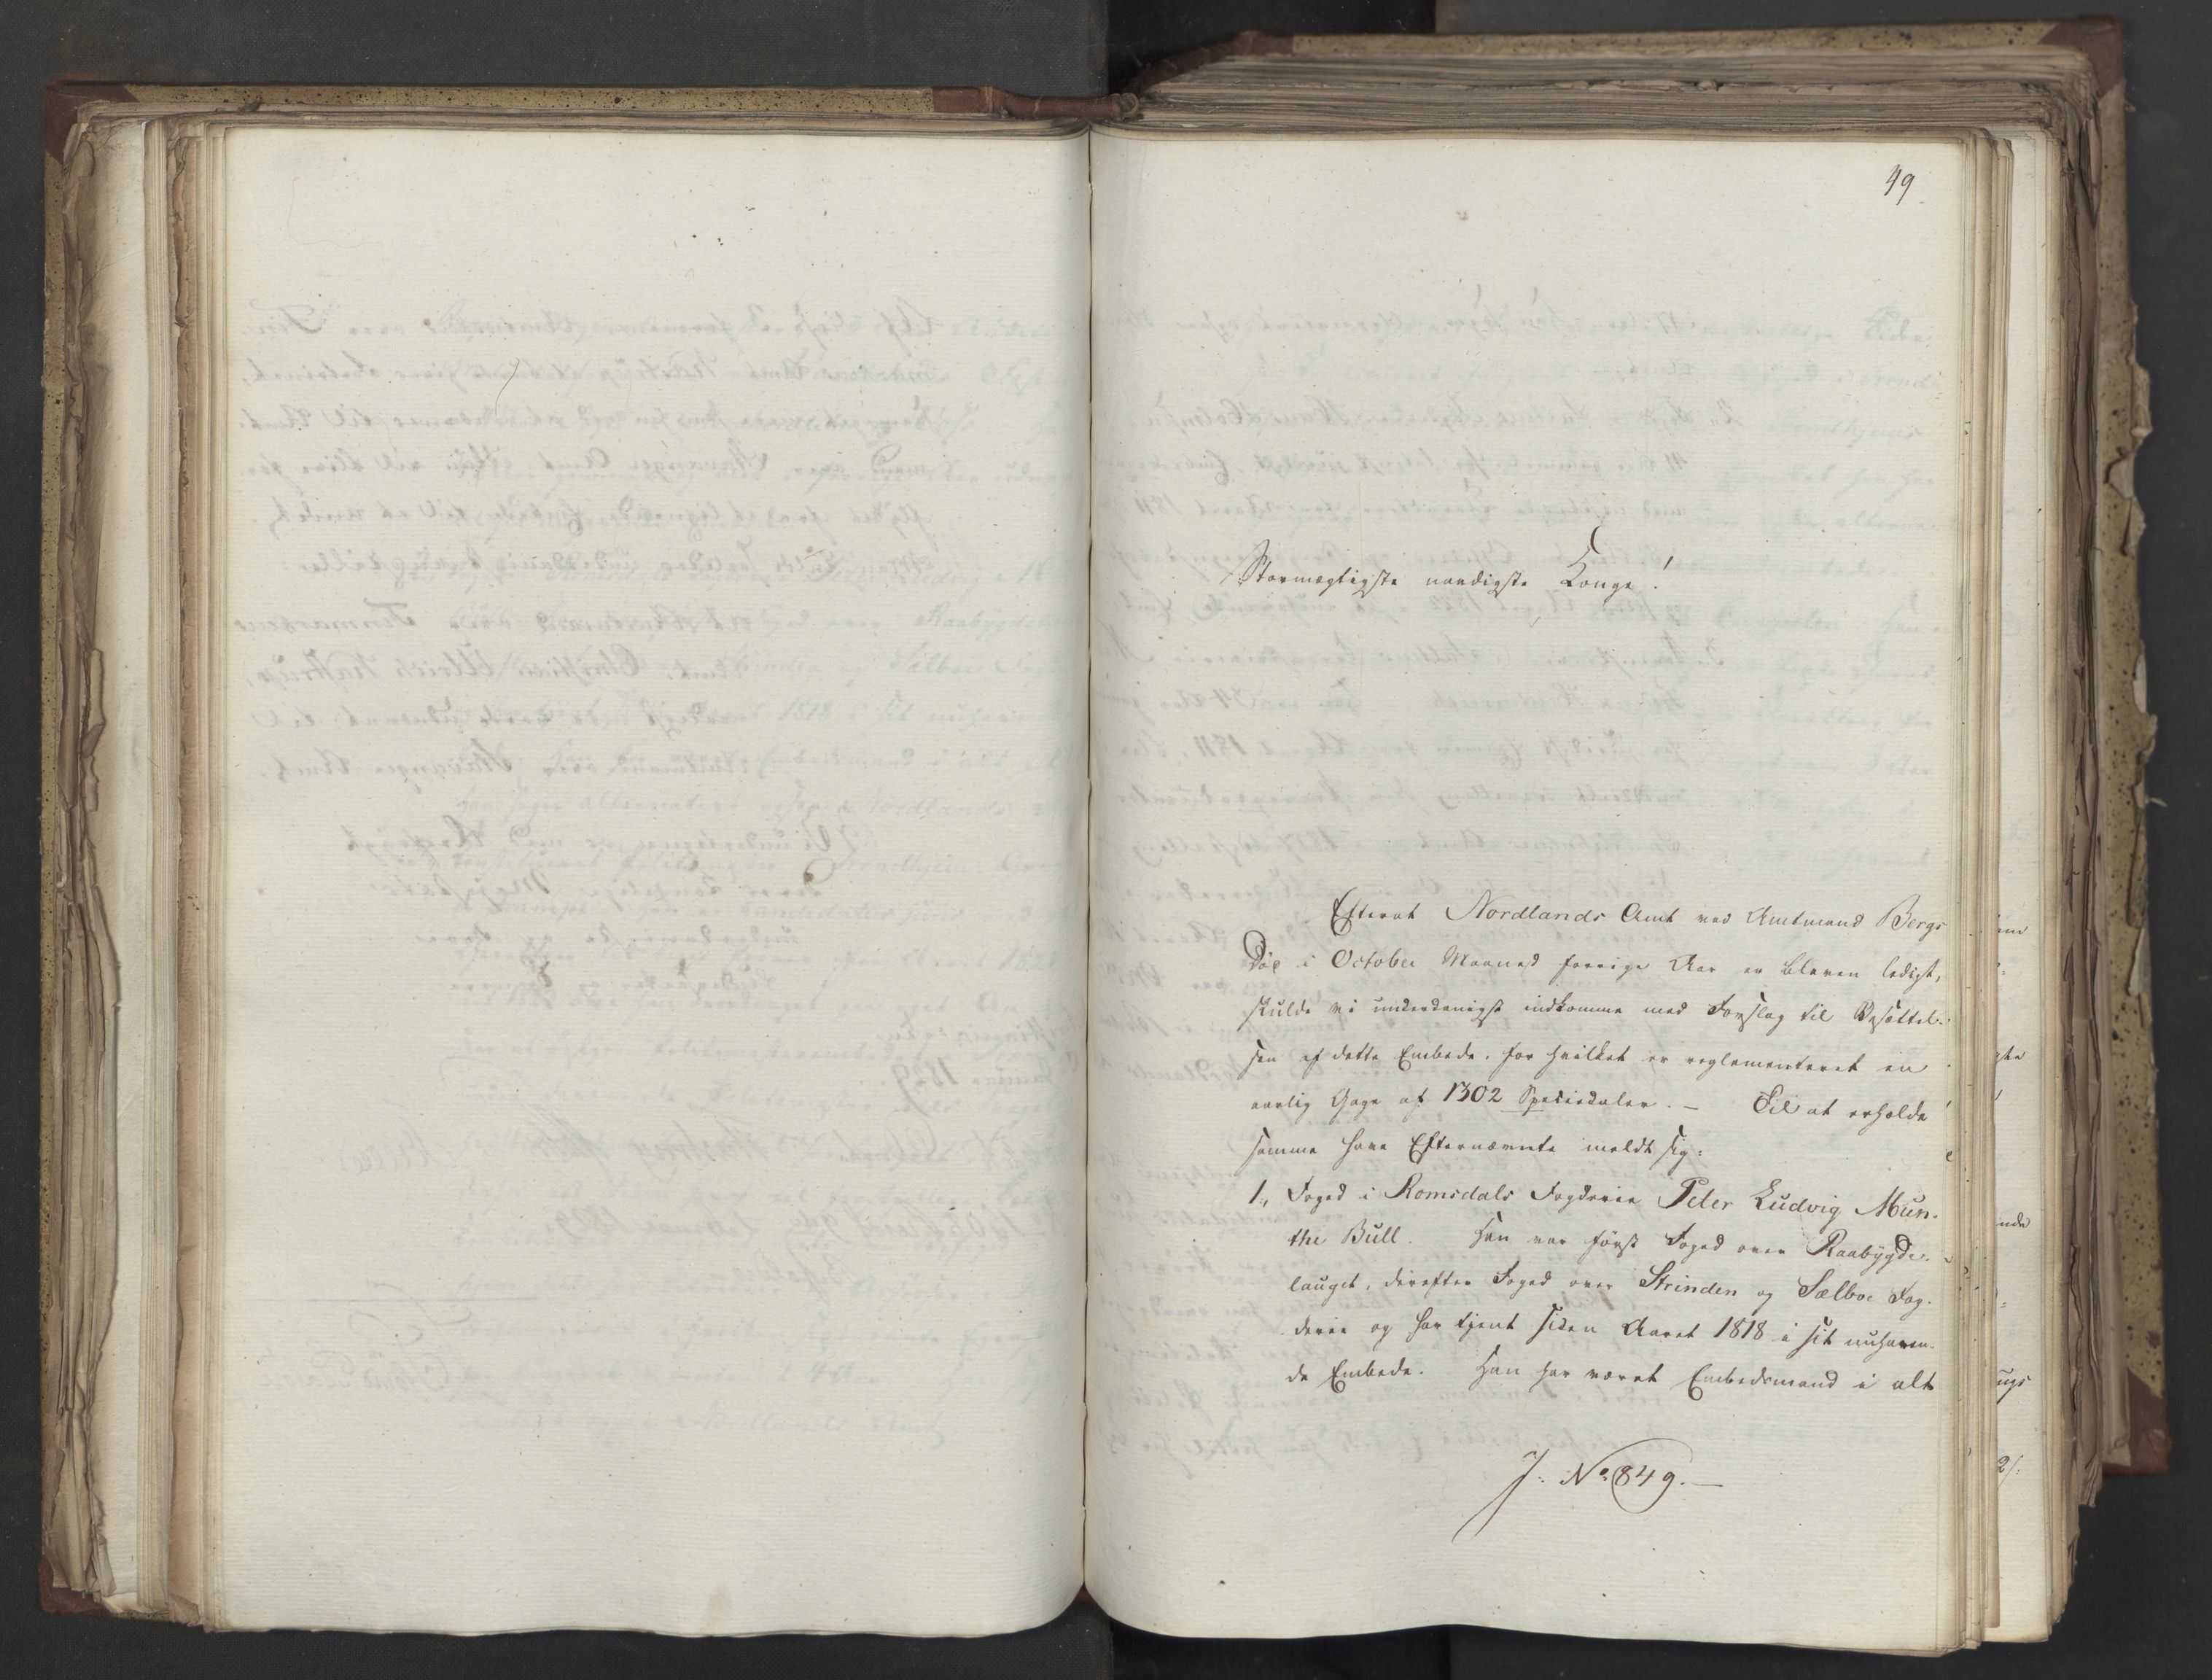 49
Stormægtigste naadigste Konge!
Efterat Nordlands Amt ved Amtmand Bergs
Død i October Maaned forrige Aar er bleven ledigt,
skulde vi underdanigst indkomme med Forslag til Besættel-
sen af dette Embede, for hvilket er reglementeret en
aarlig Gage af 1302 Speciedaler. – Til at erholde
samme have Efternævnte meldt sig:
1., Foged i Romsdals Fogderie Peter Ludvig Mun-
the Bull. Han var først Foged over Raabygde-
lauget, derefter Foged over Strinden og Sælboe Fog-
derie og har tjent siden Aaret 1818 i sit nuhaven-
de Embede. Han har været Embedsmand i alt
J: No 849. –